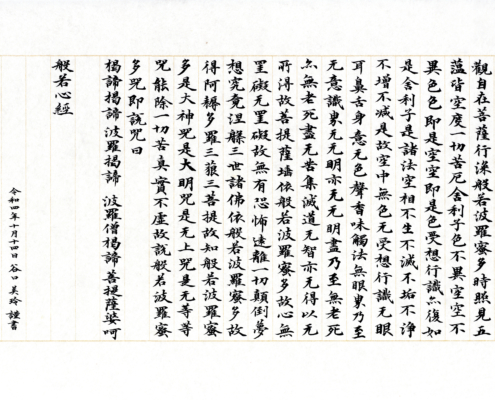 觀自在菩薩行深般若波羅蜜多時照見五
蘊皆空度一切苦厄舍利子色不異空空不
異色色即是空空即是色受想行識亦復如
是舍利子是諸法空相不生不滅不垢不淨
不增不減是故空中無色无受想行識无眼
耳鼻舌身意无色聲香味觸法無眼界乃至
无意識界无无明亦无无明盡乃至無老死
亦無老死盡无苦集滅道无智亦无得以无
所得故菩提薩埵依般若波羅蜜多故心無
罣礙无罣礙故無有恐怖遠離一切顛倒夢
想究竟涅槃三世諸佛依般若波羅蜜多故
得阿耨多羅三藐三菩提故知般若波羅蜜
多是大神咒是大明咒是无上咒是无等等
咒能除一切苦真實不虛故說般若波羅蜜
多咒即說咒曰
揭諦揭諦 波羅揭諦 波羅僧揭諦 菩提薩婆呵
般若心經
令和四年十月十四日 谷口美玲 謹書